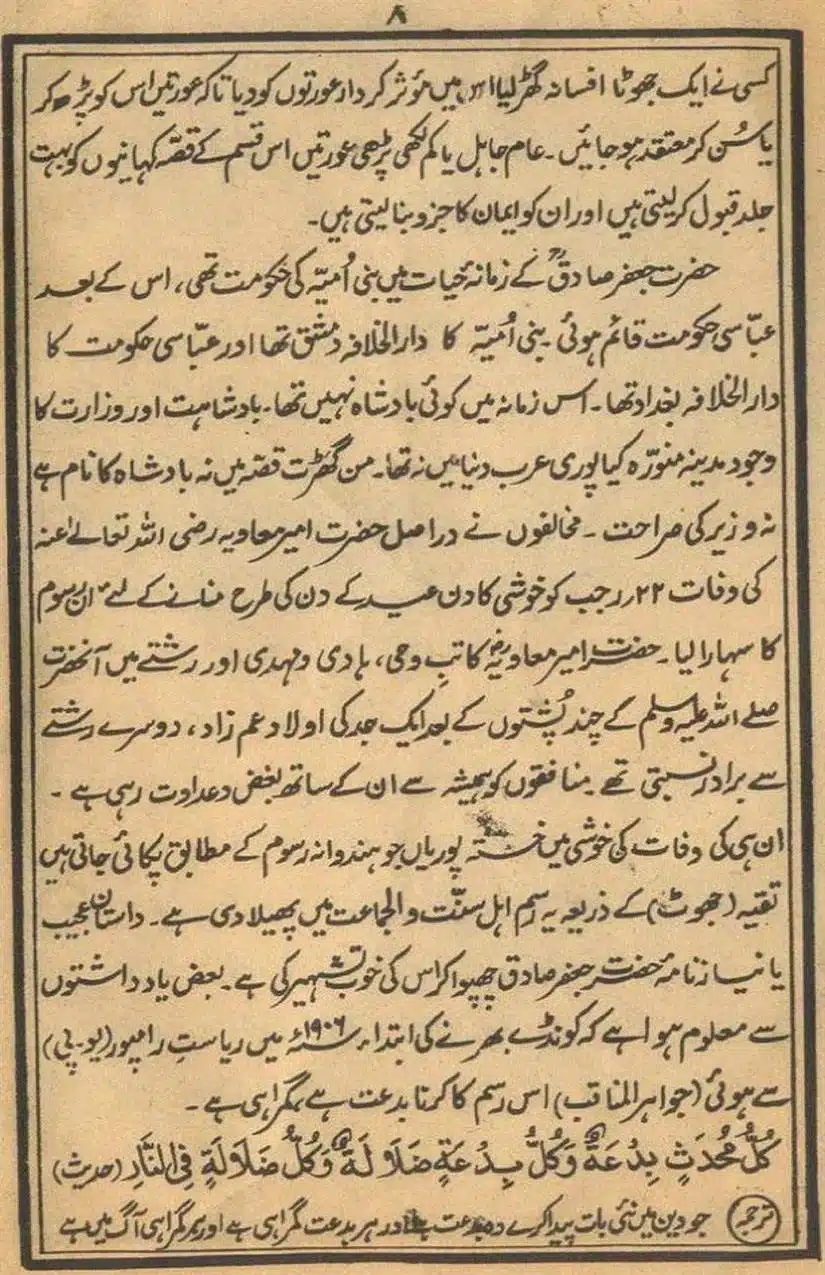 ۸
کسی نے ایک جھوٹا افسانہ گھڑ لیا اس میں مؤثر کردار عورتوں کو دیا تاکہ عورتیں اس کو پڑھ کر
یا سُن کر معتقد ہو جائیں ۔ عام جاہل یا کم لکھی پڑھی عورتیں اس قسم کے قصّہ کہانیوں کو بہت
جلد قبول کر لیتی ہیں اور ان کو ایمان کا جزو بنا لیتی ہیں ۔
حضرت جعفر صادقؒ کے زمانۂ حیات میں بنی اُمیّہ کی حکومت تھی ، اس کے بعد
عبّاسی حکومت قائم ہوئی ۔ بنی اُمیّہ کا دار الخلافہ دمشق تھا اور عبّاسی حکومت کا
دار الخلافہ بغداد تھا ۔ اس زمانہ میں کوئی بادشاہ نہیں تھا ۔ بادشاہت اور وزارت کا
وجود مدینہ منوّرہ کیا پوری عرب دنیا میں نہ تھا ۔ من گھڑت قصّہ میں نہ بادشاہ کا نام ہے
نہ وزیر کی صراحت ۔ مخالفوں نے در اصل حضرت امیر معاویہ رضی اللہ تعالےٰ عنہ
کی وفات ۲۲؍ رجب کو خوشی کا دن عید کے دن کی طرح منانے کے لئے ان رسوم
کا سہارا لیا ۔ حضرت امیر معاویہؓ کاتبِ وحی ، ہادی و مہدی اور رشتے میں آنحضرت
صلے اللہ علیہ وسلم کے چند پُشتوں کے بعد ایک جد کی اولاد عم زاد ، دوسرے رشتے
سے برادر نسبتی تھے ۔ منافقوں کو ہمیشہ سے ان کے ساتھ بغض و عداوت رہی ہے ۔
ان ہی کی وفات کی خوشی میں خستہ پوریاں جو ہندوانہ رسوم کے مطابق پکائی جاتی ہیں
تقیہ (جھوٹ) کے ذریعہ یہ رسم اہل سنّت والجماعت میں پھیلا دی ہے ۔ داستان عجیب
یا نیاز نامۂ حضرت جعفر صادق چھپوا کر اس کی خوب تشہیر کی ہے ۔ بعض یاد داشتوں
سے معلوم ہوا ہے کہ کونڈے بھرنے کی ابتداء ۱۹۰۶ء میں ریاستِ رامپور (یو ۔ پی)
سے ہوئی (جواہر المناقب) اس رسم کا کرنا بدعت ہے ، گمراہی ہے ۔
کُلُّ مُحْدَثٍ بِدْعَةٌ وَکُلُّ بِدْعَةٍ ضَلَالَةٌ وَکُلُّ ضَلَالَةٍ فِی النَّارِ (حدیث)
(ترجمہ) جو دین میں نئی بات پیدا کرے وہ بدعت ہے اور ہر بدعت گمراہی ہے اور ہر گمراہی آگ میں ہے